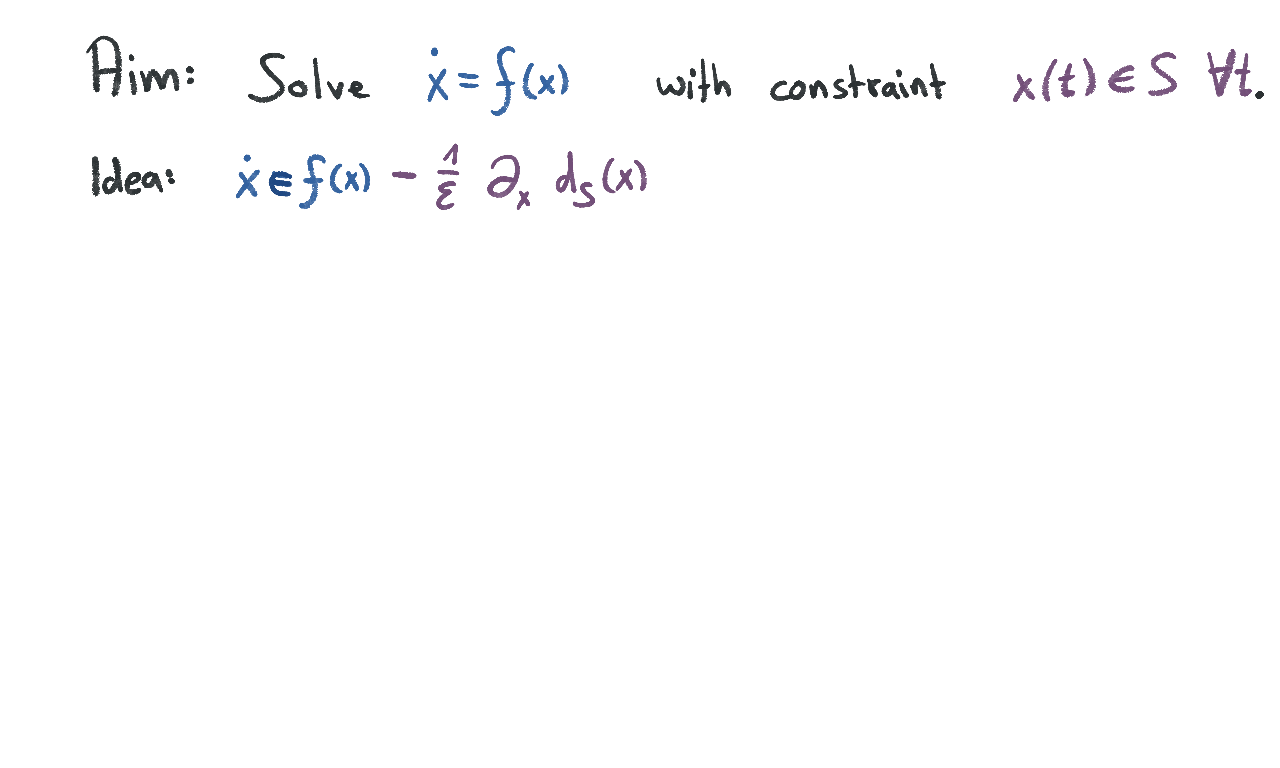 Aim: Solve ẋ = f(x) with constraint x(t) ∈ S ∀t.
Idea: ẋ ∈ f(x) - 1/ε ∂ₓ d_S(x)